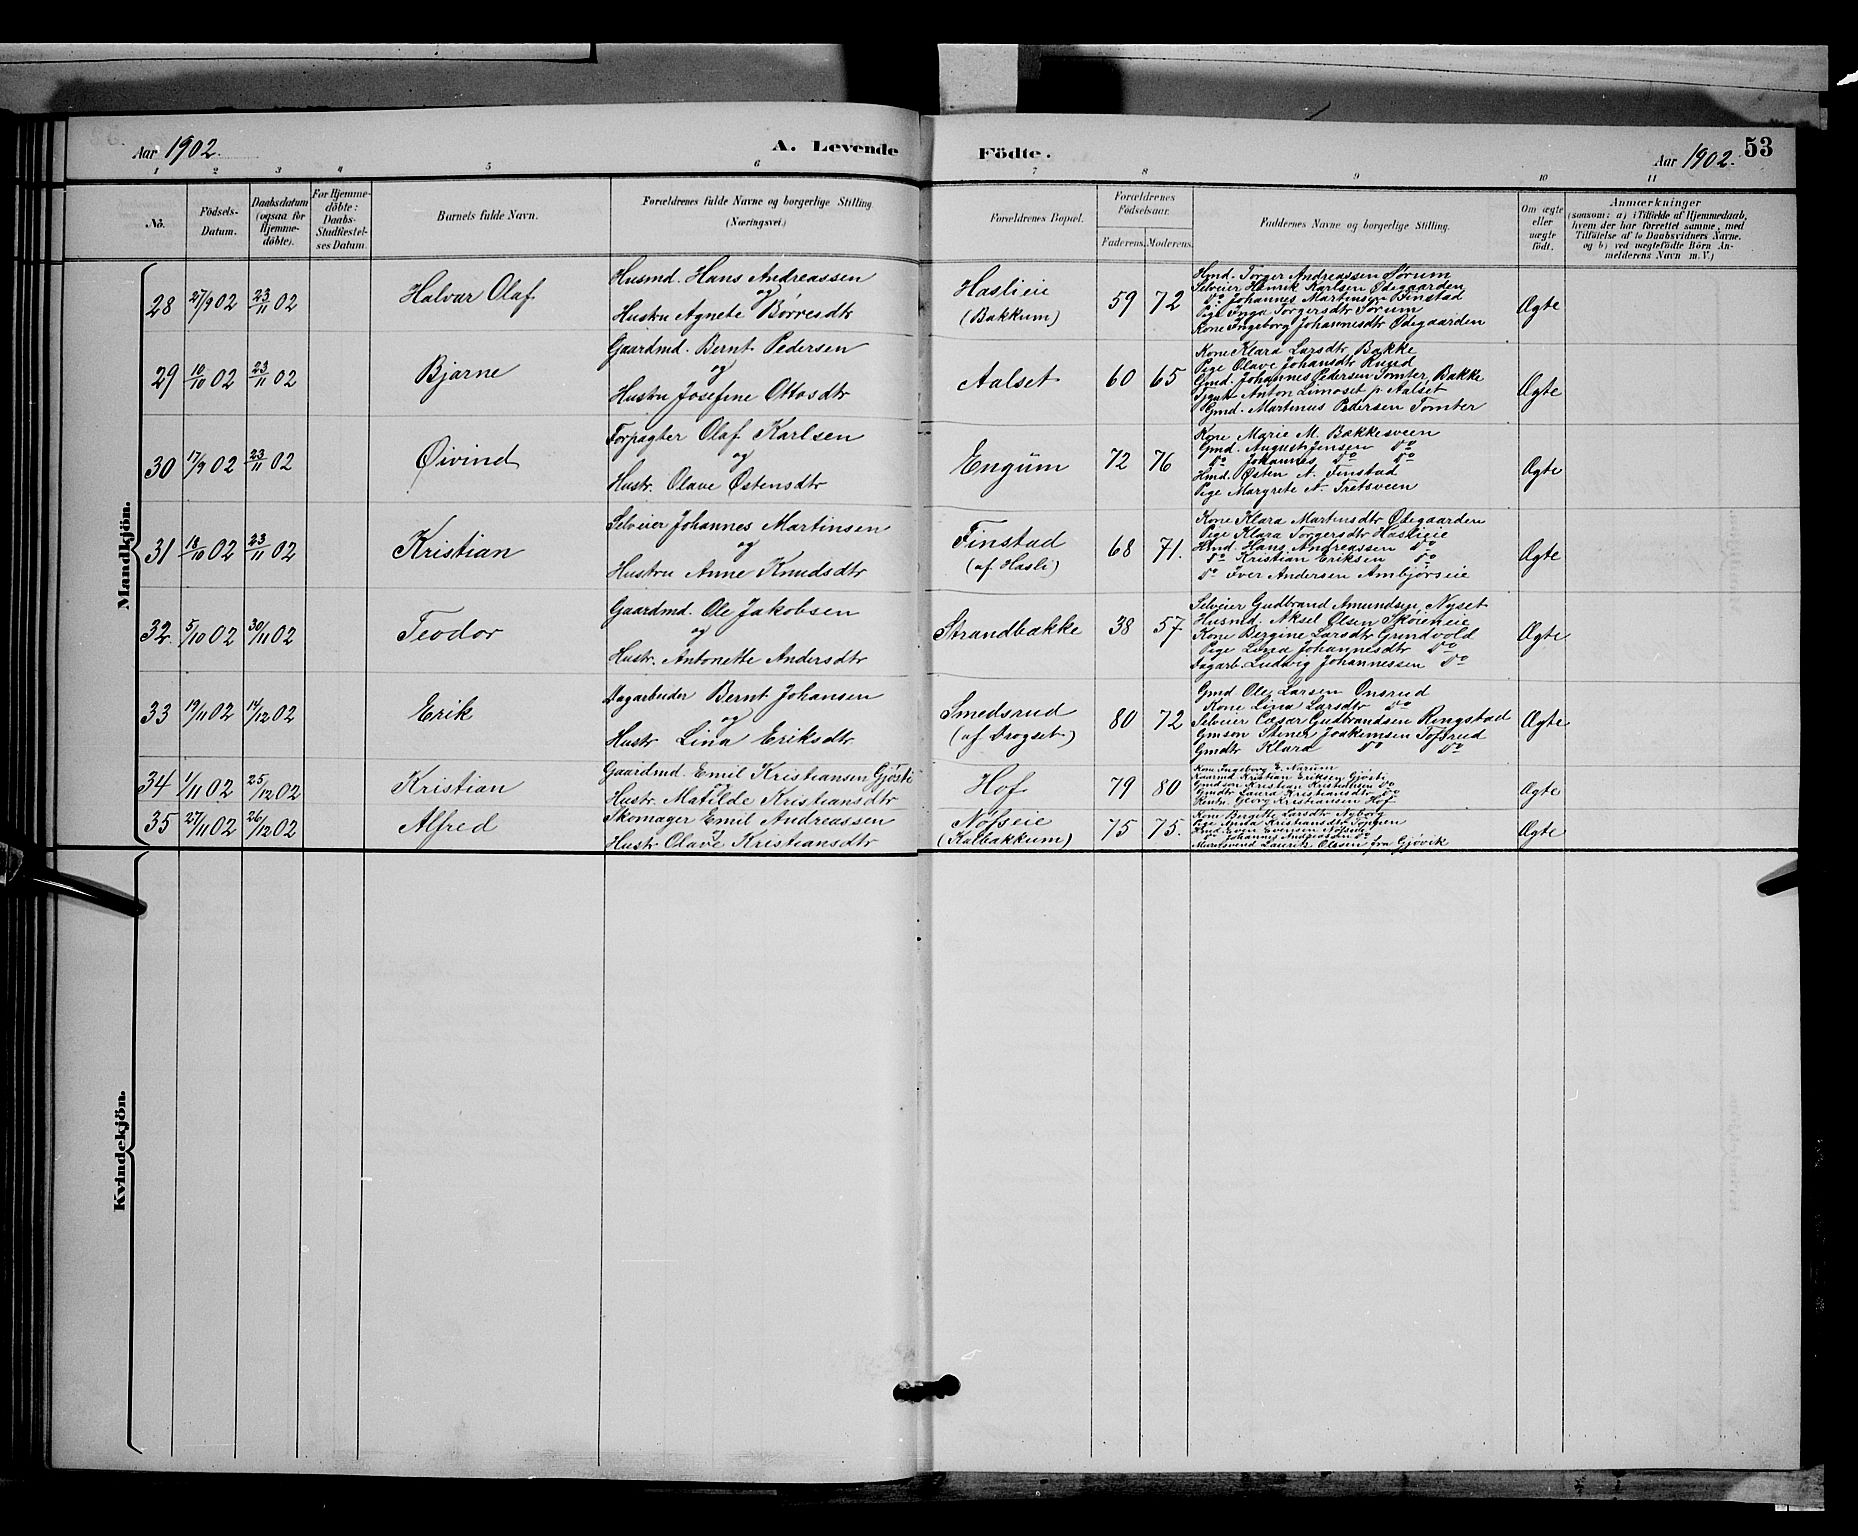 Aar 1902.
A. Levende Födte.
Aar 1902. 53
1 2 3 4 5 6 7 8 9 10 11
No.
Födsels-
Datum.
Daabsdatum
(ogsaa for
Hjemme-
döbte).
For Hjemme-
döbte:
Daabs-
Stadfæstel-
ses Datum.
Barnets fulde Navn.
Forældrenes fulde Navne og borgerlige Stilling.
(Næringsvei.)
Forældrenes Bopæl.
Forældrenes
Födselsaar.
Faderens. Moderens.
Faddernes Navne og borgerlige Stilling.
Om ægte
eller
uægte
födt.
Anmærkninger
(saasom: a) i Tilfælde af Hjemmedaab,
hvem der har forrettet samme, med
Tilföielse af to Daabsvidners Navne.
og b) ved uægtefödte Börn An-
melderens Navn m. V.)
Mandkjön.
28 27/9 02 23/11 02 Halvar Olaf
Husmd. Hans Andreassen
og
Hustru Agnete Børresdtr
Haslieie
(Bakkum)
59 72
Hmd. Torger Andreassen Sørum
Selveier Henrik Karlsen Ødegaarden
Do Johannes Martinsen Finstad
Pige Inga Torgersdtr Sørum
Kone Ingeborg Johannesdtr Ødegaarden
Ægte
29 10/10 02 23/11 02 Bjarne
Gaardmd. Bernt Pedersen
og
Hustru Josefine Ottosdtr
Aalset
60 65
Kone Klara Larsdtr Bakke
Pige Olave Johansdtr Ruud
Gmd. Johannes Pedersen Tomter, Bakke
Anton Limoset p. Aalset
Gmd. Martinus Pedersen Tomter
Ægte
30 17/9 02 23/11 02 Øivind
Forpagter Olaf Karlsen
og
Hustr. Olave Østensdtr
Engum
72 76
Kone Marie M. Bakkesveen
Gmd. August Jensen Do
Do Johannes Do Do
Hmd. Østen A. Finstad
Pige Margrete A. Fretsveen
Ægte
31 18/10 02 23/11 02 Kristian
Selveier Johannes Martinsen
og
Hustru Anne Knudsdtr
Finstad
(af Hasli)
68 71.
Kone Klara Martinsdtr Ødegaarden
Pige Klara Torgersdtr Haslieie
Hmd. Hans Andreassen Do
Do Kristian Eriksen Do
Do Iver Andersen Ambjørseie
Ægte
32. 5/10 02 30/11 02 Teodor
Gaardmd. Ole Jakobsen
og
Hustr. Antonette Andersdtr
Strandbakke
38 57
Selveier Gudbrand Amundsen, Nyset
Husmd. Aksel Olsen Skøieneie
Kone Bergine Larsdtr Grindvold
Pige Lina Johannesdtr Do
Dagarb. Ludvig Johannessen Do
Ægte
33 19/11 02 14/12 02 Erik
Dagarbeider Bernt Johansen
og
Hustr Lina Eriksdtr
Smedsrud
(af Drogset)
80 72
Gmd Ole Larsen Onsrud
Kone Lina Larsdtr Do
Selveier Cæsar Gudbrandsen Ringstad
Gmsøn Stener Joakimsen Tofsrud
Gmdtr Klara Do Do
Ægte
34 1/11 02 25/12 02 Kristian
Gaardmd. Emil Kristiansen Gjøsti
og
Hustr. Matilde Kristiansdtr
Hof
79 80
Kone Ingeborg E. Narum
Gaarmd. Kristian Eriksen Gjøsti
Gmdsøn Kristian Kristiansen Do
Gmdtr Laura Kristiansdtr Do
Georg Kristiansen Hof
Ægte
35 27/11 02 26/12 02 Alfred
Skomager Emil Andreassen
og
Hustr Olave Kristiansdtr
Nøfseie
(Kalbakkum)
75 75.
Kone Borgitte Larsdtr Nyborg
Pige Anda Kristiansdtr
Hmd. Even Evensen Nøfseie
Do Johannes Andreassen Do
Mursvend Laurits Olssen fra Gjøvik
Ægte
Kvindekjön.